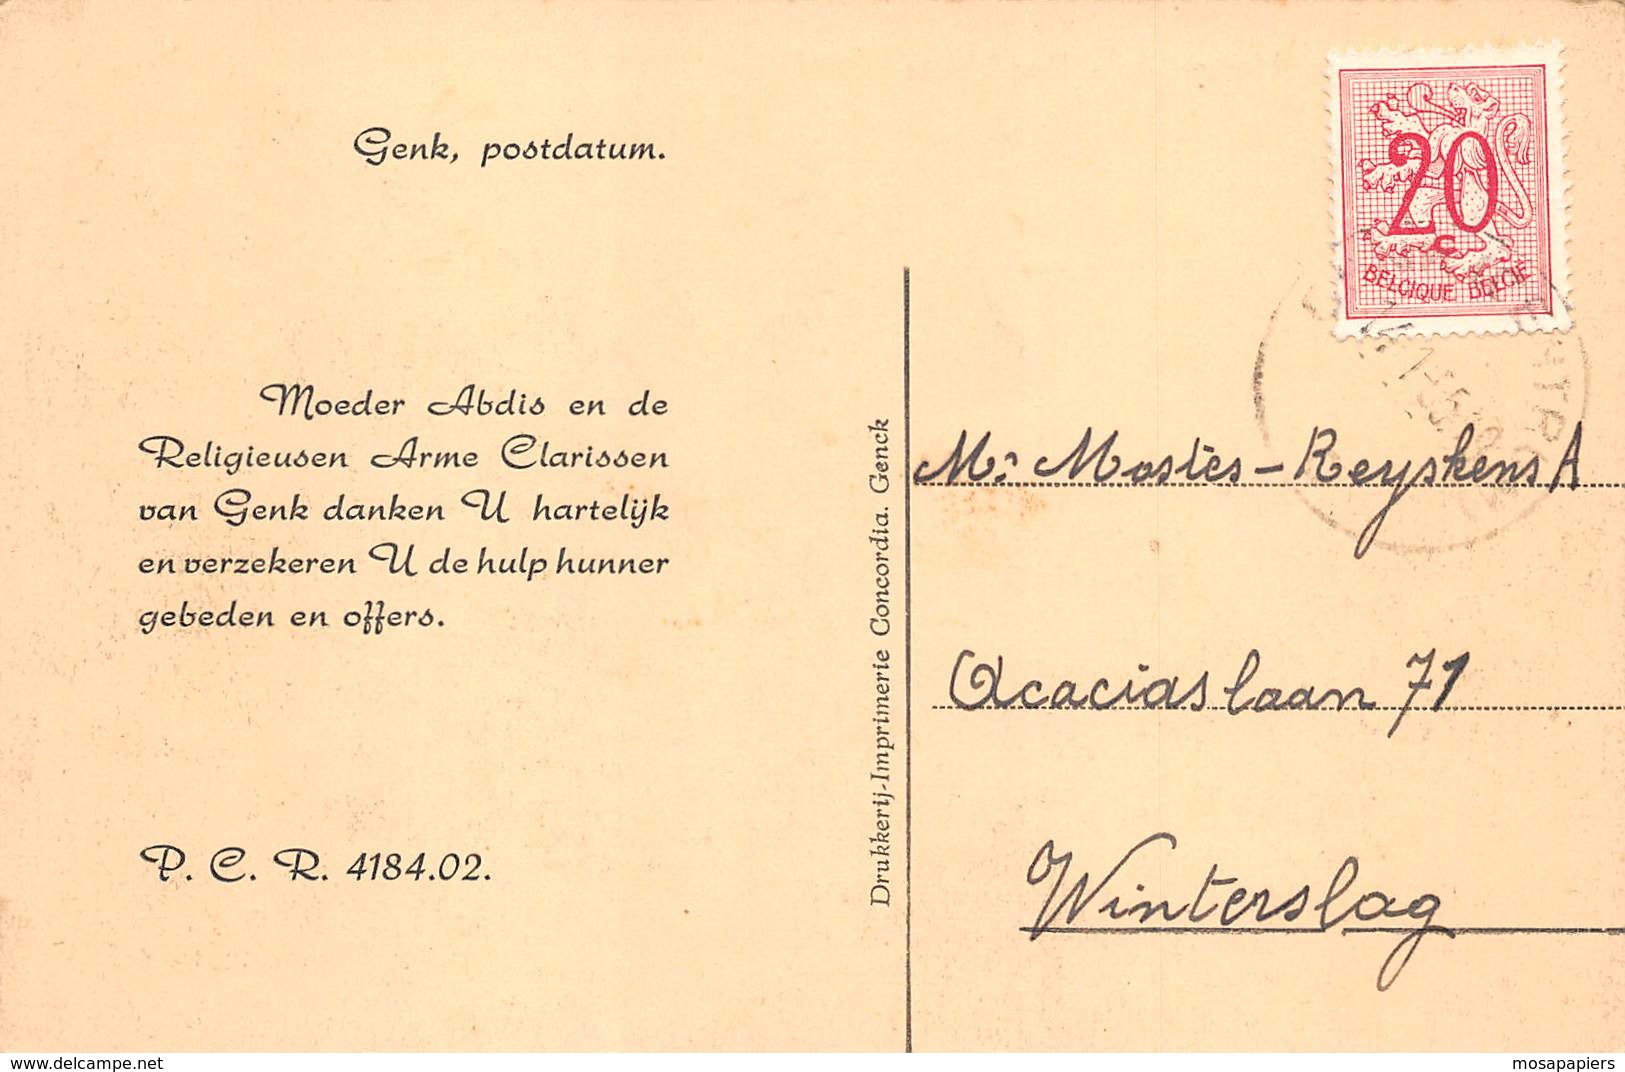 Genk, postdatum.
Moeder Abdis en de
Religieusen Arme Clarissen
van Genk danken U hartelijk
en verzekeren U de hulp hunner
gebeden en offers.
P. C. R. 4184.02.
Drukkerij-Imprimerie Concordia. Genck
20
c
BELGIQUE BELGIË
Mr Mostès - Reyskens A
Acacias laan 71
Winterslag
www.delcampe.net
mosapapiers